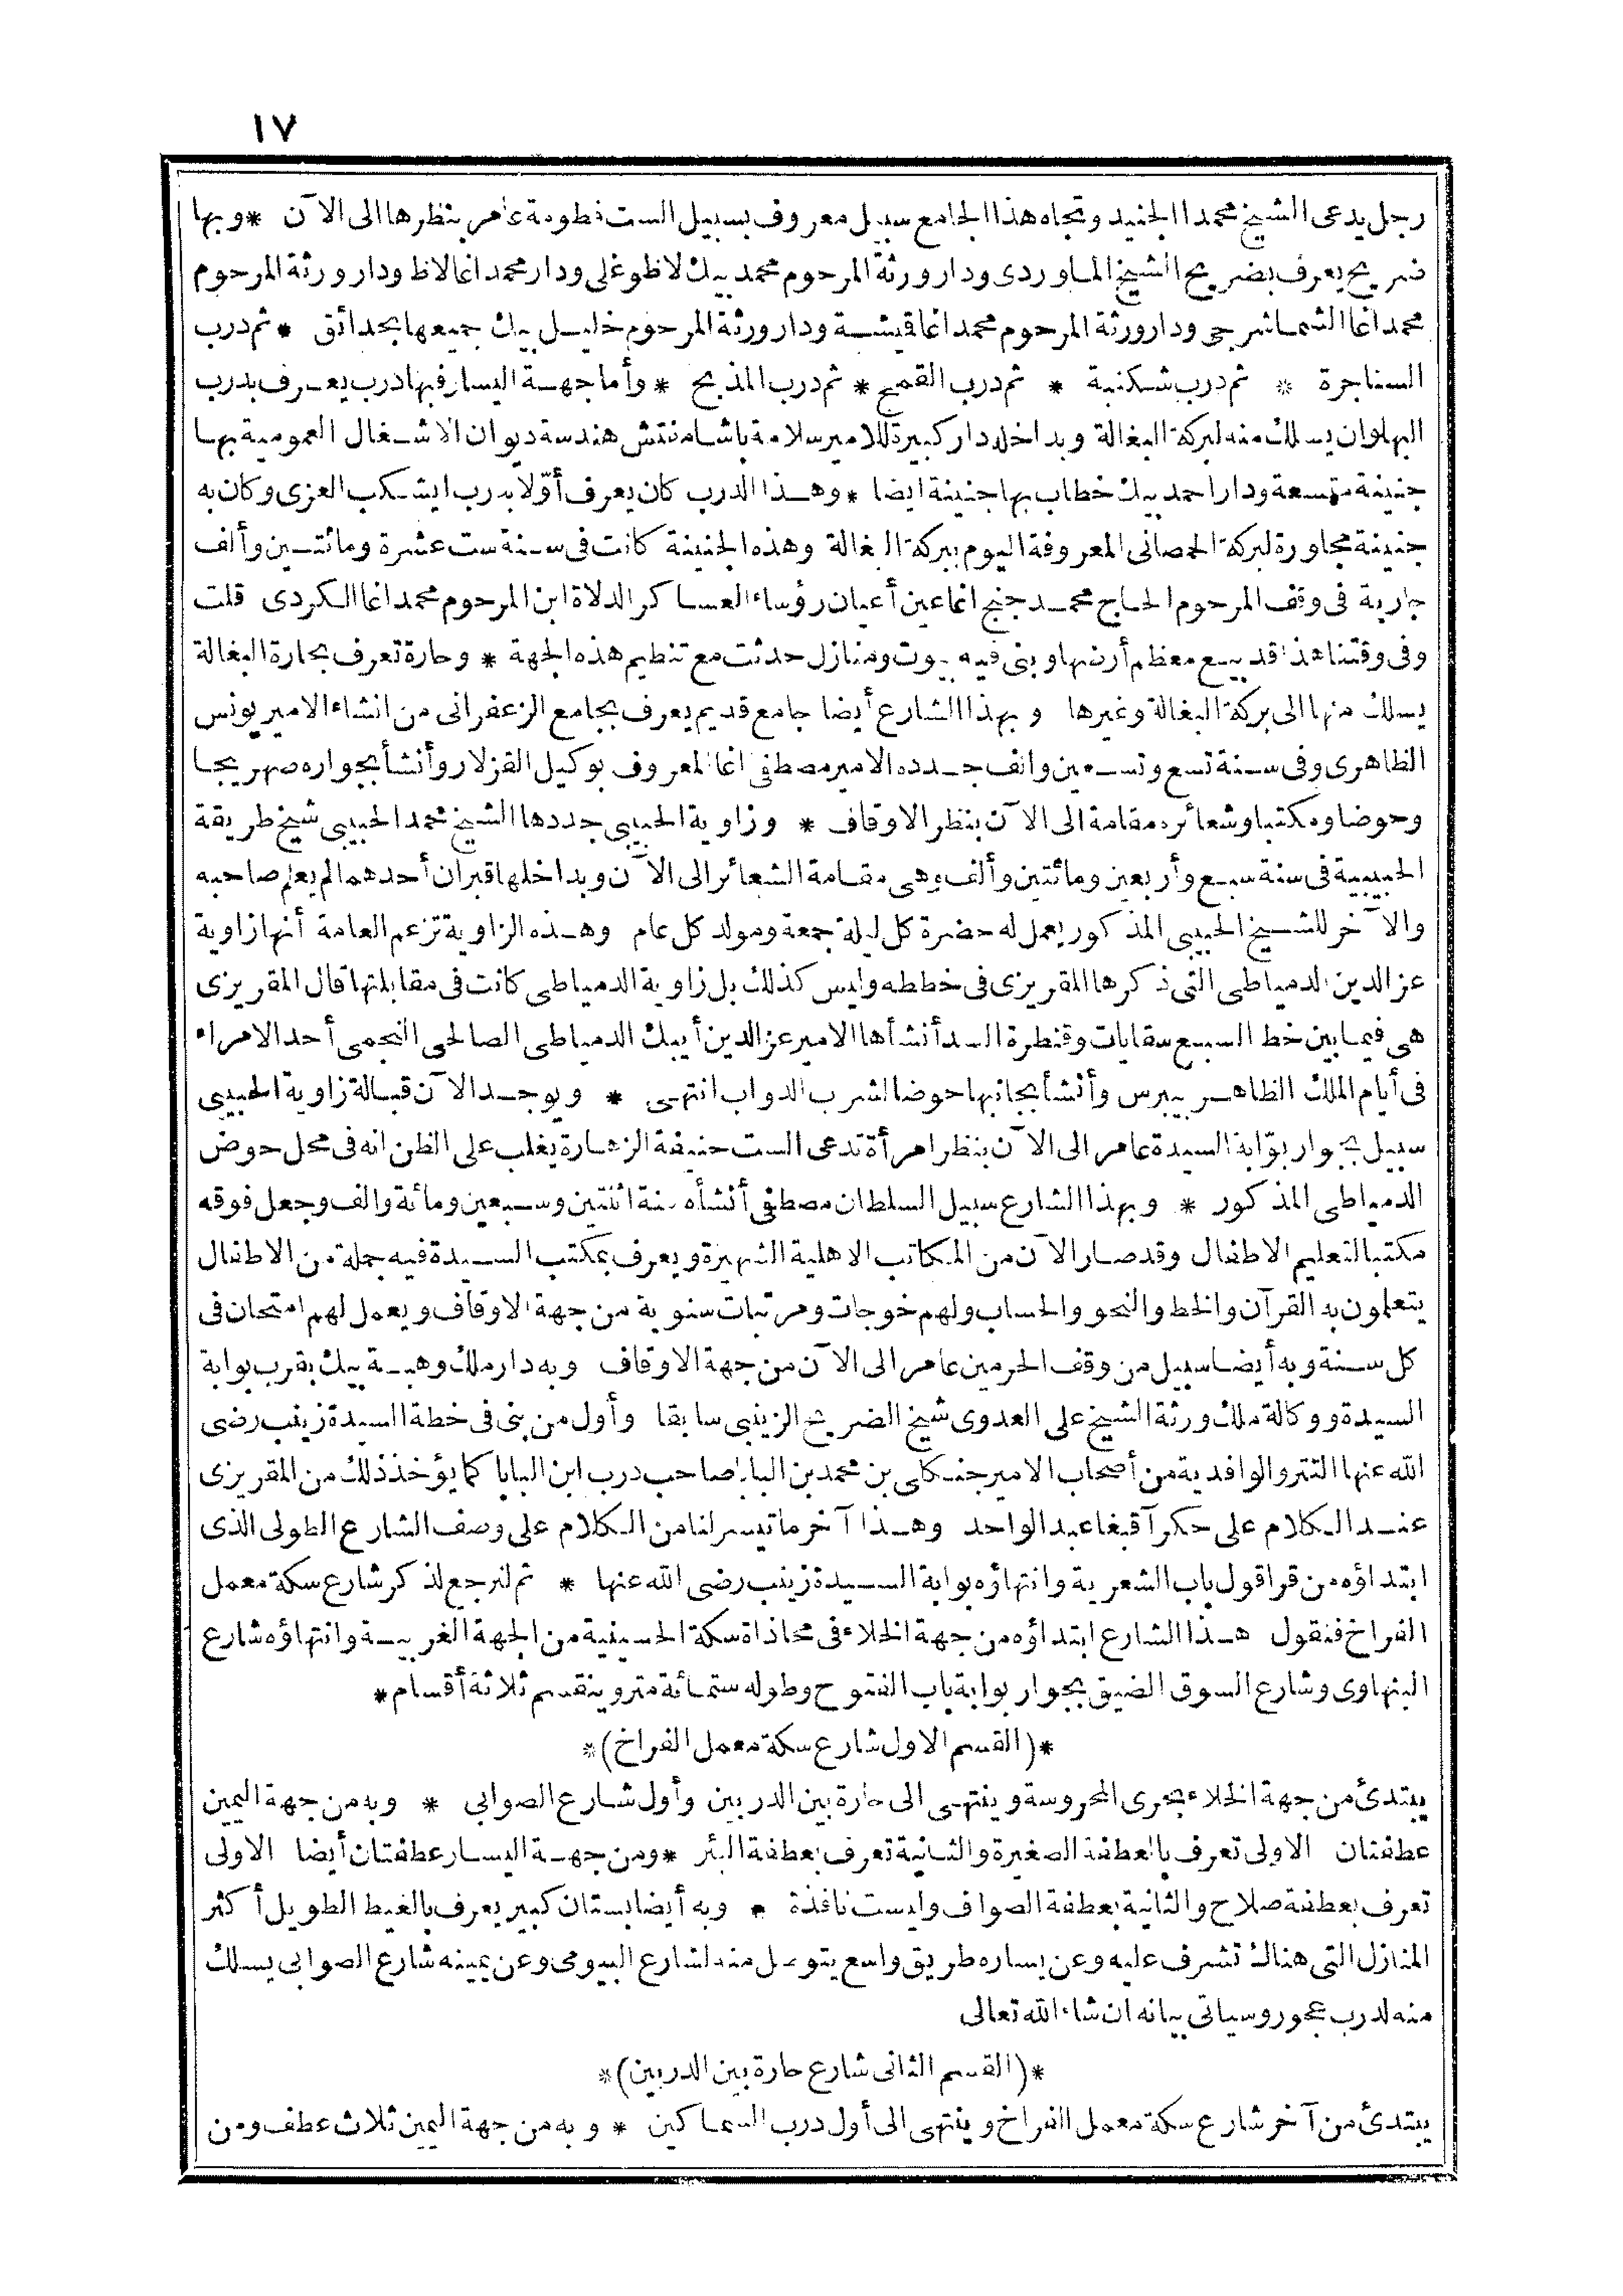 ١٧
رجل يدعى الشيخ محمدا الجنيد وتجاه هذا الجامع سبيل معروف بسبيل الست فطومة عامر بنظرها الى الآن * وبها
ضريح يعرف بضريح الشيخ الماوردى ودار ورثة المرحوم محمد بيك لاظوغلى ودار محمد اغا لاظ ودار ورثة المرحوم
محمد اغا الشماشرجى ودار ورثة المرحوم محمد اغا قيشة ودار ورثة المرحوم خليل بيك جميعها بحدائق * ثم درب
السناجرة * ثم درب شكنبة * ثم درب القمح * ثم درب المذبح * وأما جهة اليسار فبها درب يعرف بدرب
البهلوان يسلك منه لبركة البغالة وبداخله دار كبيرة للامير سلامة باشا مفتش هندسة ديوان الاشغال العمومية بها
جنينة متسعة ودار احمد بيك خطاب بها جنينة ايضا * وهذا الدرب كان يعرف أوّلا بدرب ايشكب العزى وكان به
جنينة مجاورة لبركة الحمصانى المعروفة اليوم ببركة البغالة وهذه الجنينة كانت فى سنة ست عشرة ومائتين وألف
جارية فى وقف المرحوم الحاج محمد جنج اغا عين أعيان رؤساء العساكر الدلاة ابن المرحوم محمد اغا الكردى قلت
وفى وقتنا هذا قد بيع معظم أرضها وبنى فيه بيوت ومنازل حدثت مع تنظيم هذه الجهة * وحارة تعرف بحارة البغالة
يسلك منها الى بركة البغالة وغيرها وبهذا الشارع أيضا جامع قديم يعرف بجامع الزعفرانى من انشاء الامير يونس
الظاهرى وفى سنة تسع وتسعين والف جدده الامير مصطفى اغا المعروف بوكيل القزلار وأنشأ بجواره صهريجا
وحوضا ومكتبا وشعائره مقامة الى الآن بنظر الاوقاف * وزاوية الحبيبى جددها الشيخ محمد الحبيبى شيخ طريقة
الحبيبية فى سنة سبع وأربعين ومائتين وألف وهى مقامة الشعائر الى الآن وبداخلها قبران أحدهما لم يعلم صاحبه
والآخر للشيخ الحبيبى المذكور يعمل له حضرة كل ليلة جمعة ومولد كل عام وهذه الزاوية تزعم العامة أنها زاوية
عز الدين الدمياطى التى ذكرها المقريزى فى خططه وليس كذلك بل زاوية الدمياطى كانت فى مقابلتها قال المقريزى
هى فيما بين خط السبع سقايات وقنطرة السد أنشأها الامير عز الدين أيبك الدمياطى الصالحى النجمى أحد الامراء
فى أيام الملك الظاهر بيبرس وأنشأ بجانبها حوضا لشرب الدواب انتهى * ويوجد الآن قبالة زاوية الحبيبى
سبيل بجوار بوّابة السيدة عامر الى الآن بنظر امرأة تدعى الست حنيفة الزهارة يغلب على الظن انه فى محل حوض
الدمياطى المذكور * وبهذا الشارع سبيل السلطان مصطفى أنشأه سنة اثنتين وسبعين ومائة والف وجعل فوقه
مكتبا لتعليم الاطفال وقد صار الآن من المكاتب الاهلية الشهيرة ويعرف بمكتب السيدة فيه جملة من الاطفال
يتعلمون به القرآن والخط والنحو والحساب ولهم خوجات ومرتبات سنوية من جهة الاوقاف ويعمل لهم امتحان فى
كل سنة وبه أيضا سبيل من وقف الحرمين عامر الى الآن من جهة الاوقاف وبه دار ملك وهبة بيك بقرب بوابة
السيدة ووكالة ملك ورثة الشيخ على العدوى شيخ الضريح الزينبى سابقا وأول من بنى فى خطة السيدة زينب رضى
الله عنها التتر والوافدية من أصحاب الامير جنكلى بن محمد بن البابا صاحب درب ابن البابا كما يؤخذ ذلك من المقريزى
عند الكلام على حكر آقبغا عبد الواحد وهذا آخر ما تيسر لنا من الكلام على وصف الشارع الطولى الذى
ابتداؤه من قراقول باب الشعرية وانتهاؤه بوابة السيدة زينب رضى الله عنها * ثم لنرجع لذكر شارع سكة معمل
الفراخ فنقول هذا الشارع ابتداؤه من جهة الخلاء فى محاذاة سكة الحسينية من الجهة الغربية وانتهاؤه شارع
البنهاوى وشارع السوق الضيق بجوار بوابة باب الفتوح وطوله ستمائة متر وينقسم ثلاثة أقسام *
* (القسم الاول شارع سكة معمل الفراخ) *
يبتدئ من جهة الخلاء بحرى المحروسة وينتهى الى حارة بين الدربين وأول شارع الصوابى * وبه من جهة اليمين
عطفتان الاولى تعرف بالعطفة الصغيرة والثانية تعرف بعطفة البئر * ومن جهة اليسار عطفتان أيضا الاولى
تعرف بعطفة صلاح والثانية بعطفة الصواف وليست نافذة * وبه أيضا بستان كبير يعرف بالغيط الطويل أكثر
المنازل التى هناك تشرف عليه وعن يساره طريق واسع يتوصل منه لشارع البيومى وعن يمينه شارع الصوابى يسلك
منه لدرب عجور وسياتى بيانه ان شاء الله تعالى
* (القسم الثانى شارع حارة بين الدربين) *
يبتدئ من آخر شارع سكة معمل الفراخ وينتهى الى أول درب السماكين * وبه من جهة اليمين ثلاث عطف ومن